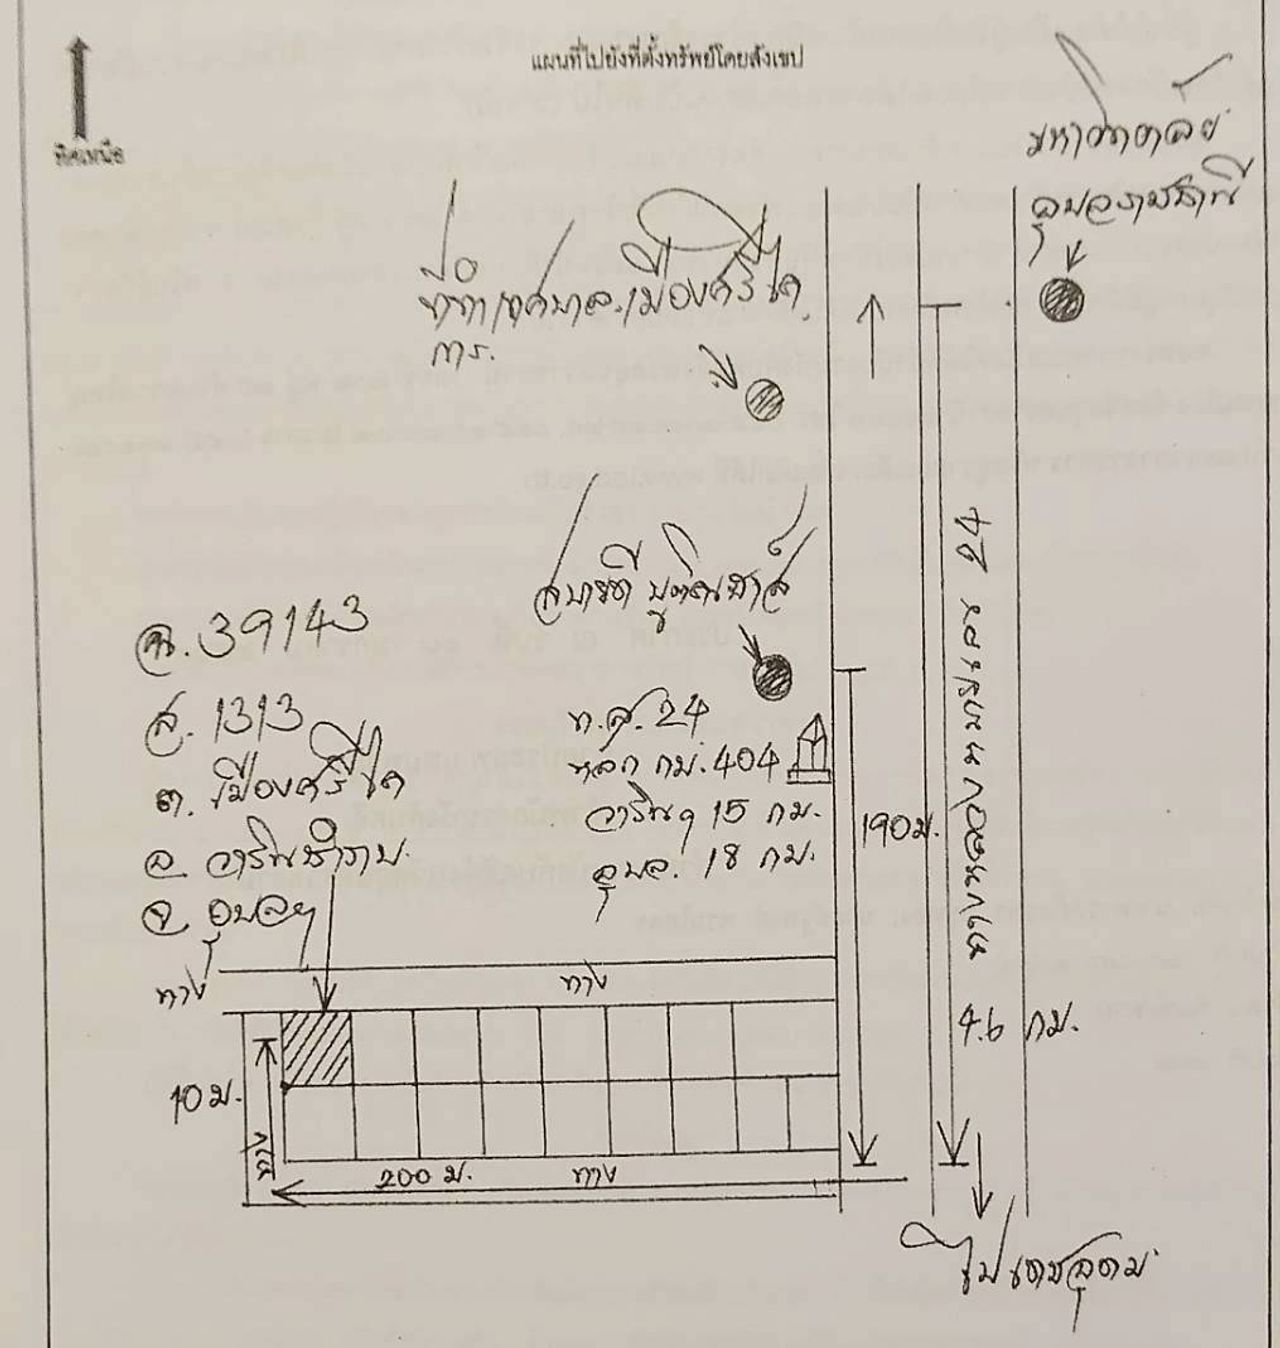 แผนที่ไปยังที่ตั้งทรัพย์โดยสังเขป
ทิศเหนือ
มหาวิทยาลัย
อุบลราชธานี
ที่ทำ เทศบาล.เมืองศรีไค
การ.
ฉ.39143
ส. 1313
ต. เมืองศรีไค
อ. วารินชำราบ.
จ. อุบลฯ
ท.ล. 24
หลัก กม. 404
วารินฯ 15 กม.
อุบล. 18 กม.
190 ม.
ถนนสถลมาร์ค
24
4.6 กม.
ทาง
ทาง
10 ม.
ทาง
200 ม.
ทาง
ไปเดชอุดม